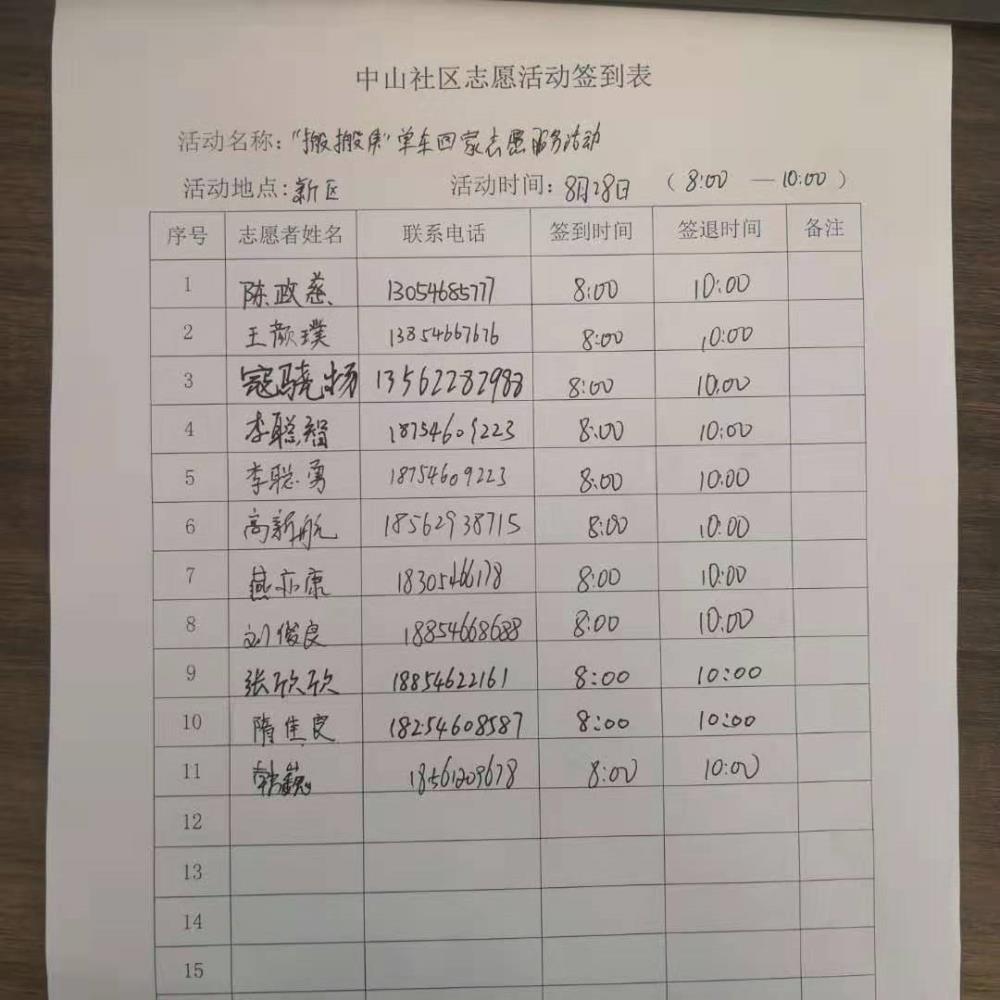 中山社区志愿活动签到表
活动名称:"搬搬侠"单车回家志愿服务活动
活动地点:新区 活动时间:8月28日 (8:00 — 10:00)
序号 志愿者姓名 联系电话 签到时间 签退时间 备注
1 陈政慈 13054685777 8:00 10:00
2 王颜璞 13854667676 8:00 10:00
3 寇骁扬 13562282988 8:00 10:00
4 李聪智 18754609223 8:00 10:00
5 李聪勇 18754609223 8:00 10:00
6 高新航 18562938715 8:00 10:00
7 燕亦康 18305466178 8:00 10:00
8 刘俊良 18854668688 8:00 10:00
9 张欣欣 18854622161 8:00 10:00
10 隋佳良 18254608587 8:00 10:00
11 韩巍 18561209678 8:00 10:00
12
13
14
15